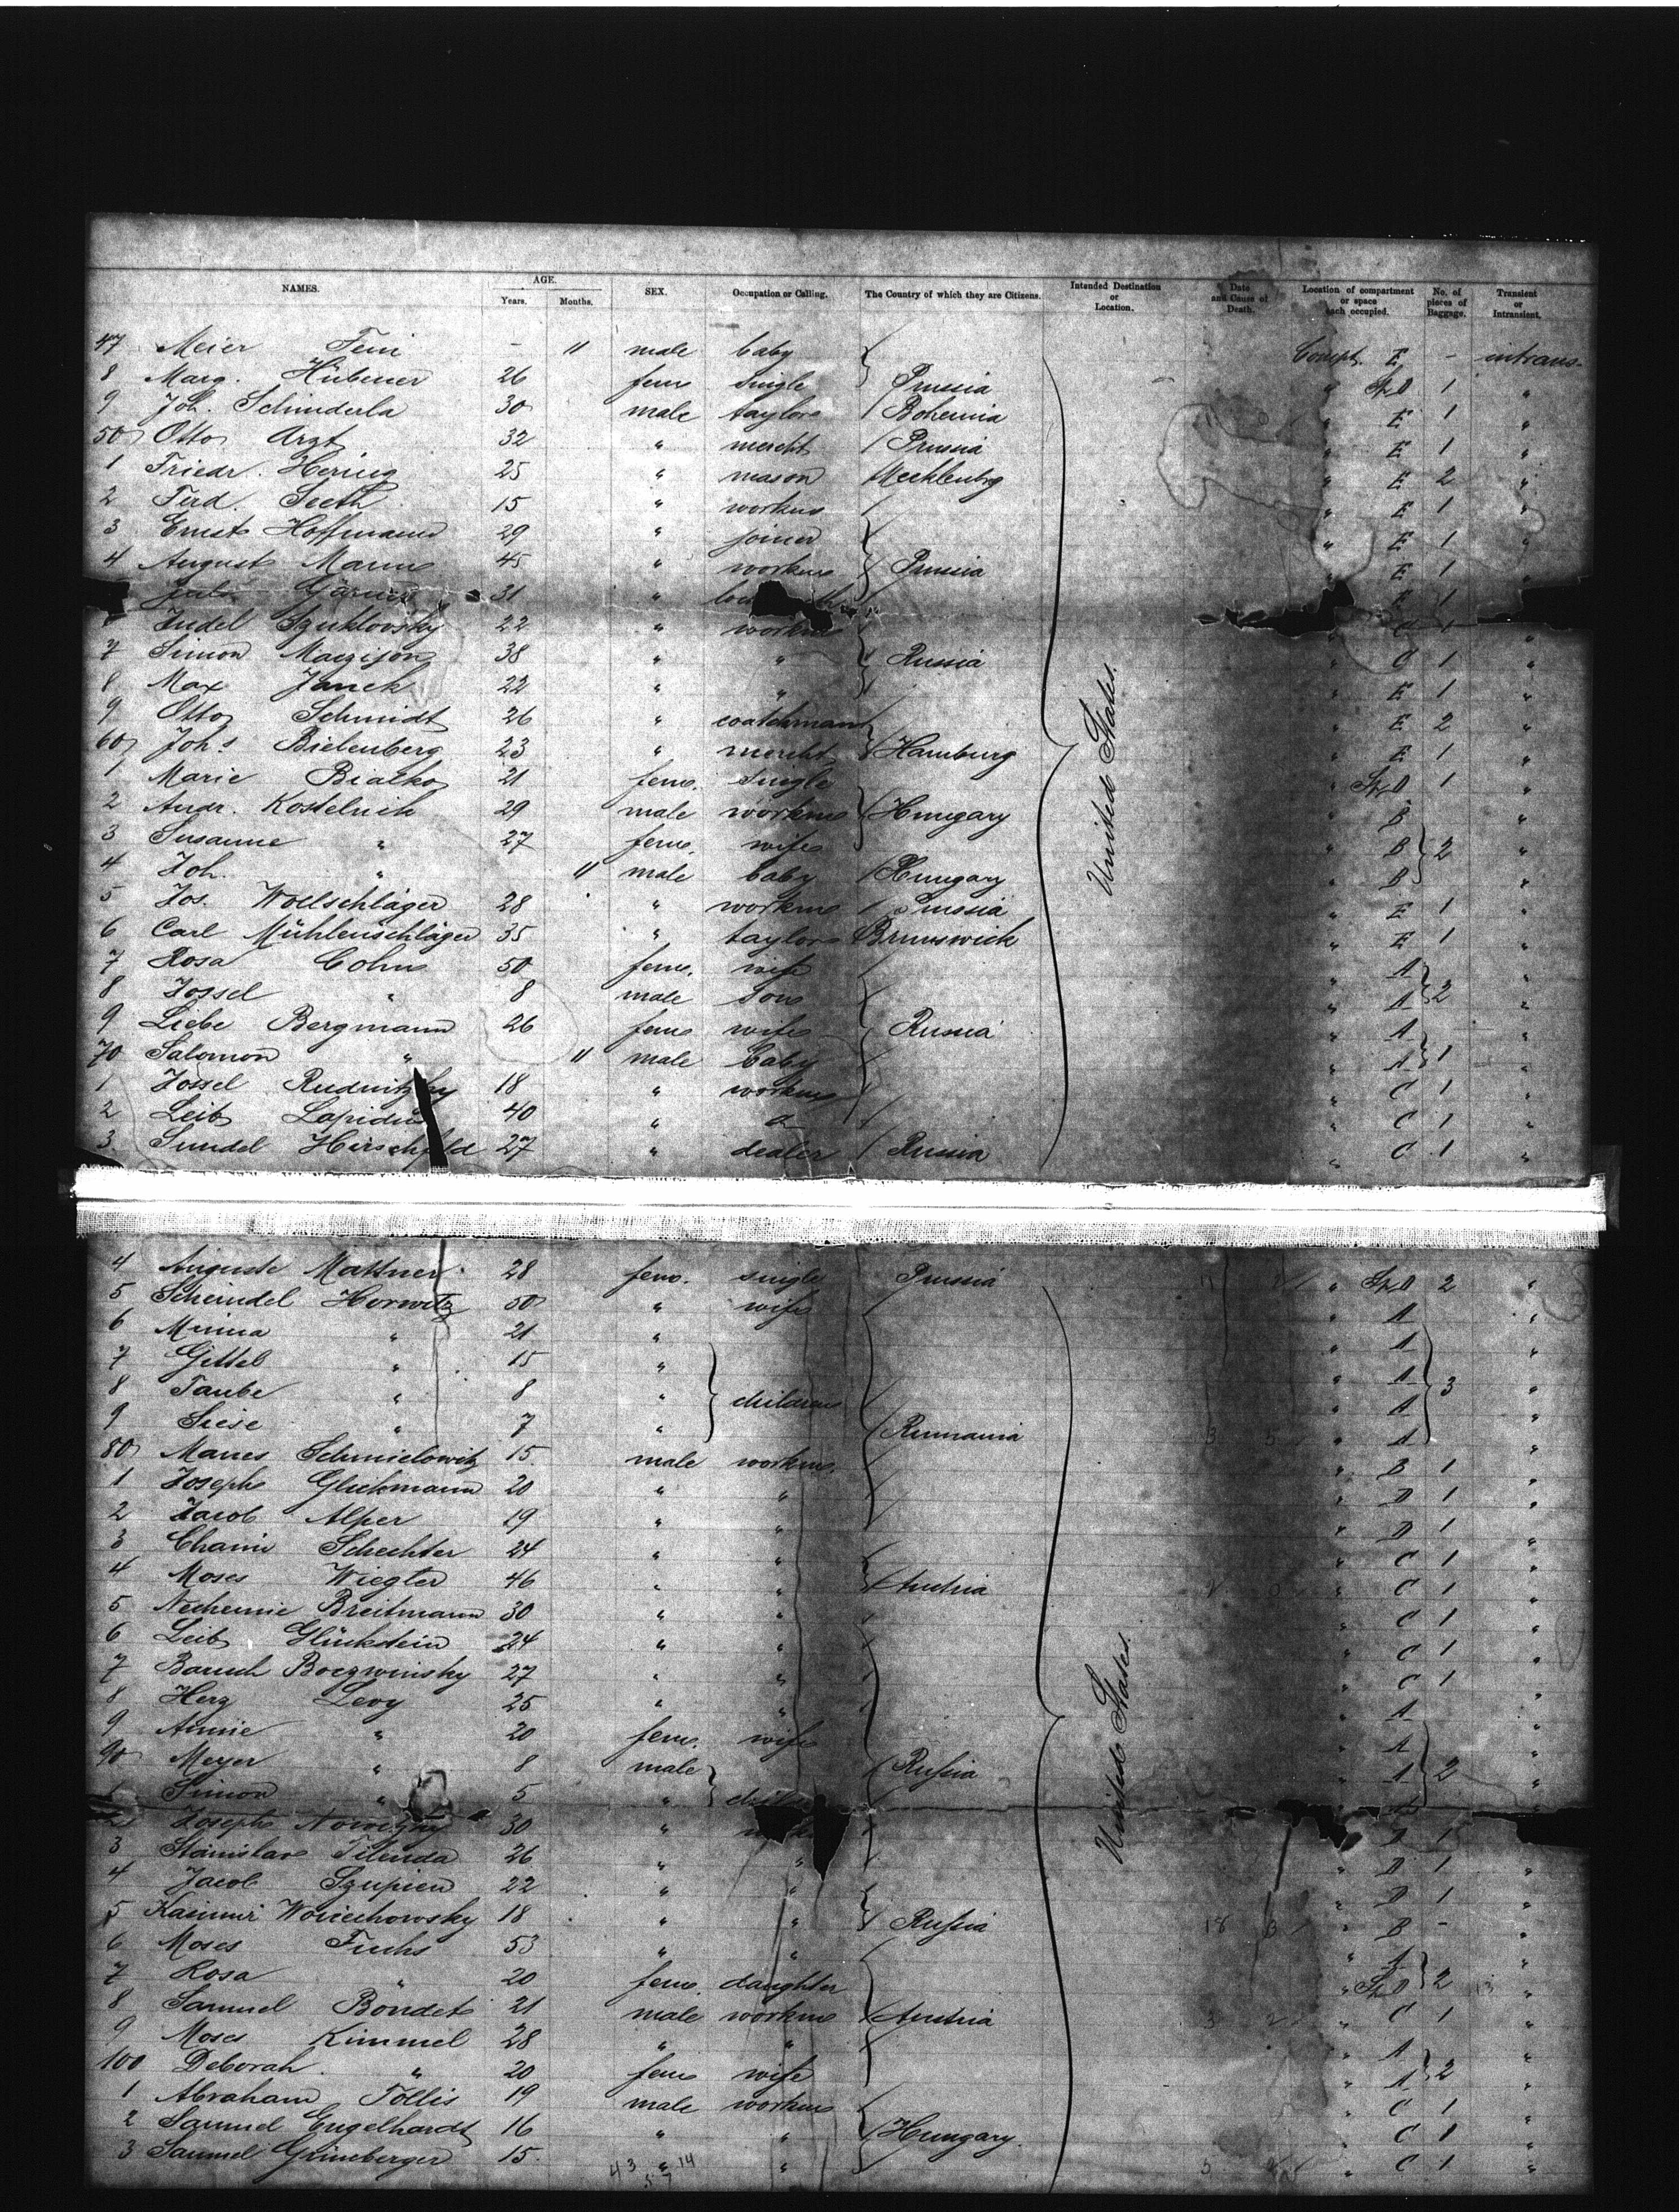 NAMES. AGE. Years. Months. SEX. Occupation or Calling. The Country of which they are Citizens. Intended Destination or Location. Date and Cause of Death. Location of compartment or space each occupied. No. of pieces of Baggage. Transient or Intransient.
47 Meier - 11 male baby Compt. E - intrans.
8 Marg. Hübener 26 fem. single Prussia " 1 "
9 Joh. Schinderla 30 male taylor Bohemia " E 1 "
50 Otto Arzt 32 " mercht Prussia " E 1 "
1 Friedr. Hering 25 " mason Mecklenbrg " E 2 "
2 Ferd. Seeth 15 " workm " E 1 "
3 Ernst Hoffmann 29 " joiner " E 1 "
4 August 45 " workm Prussia " E 1 "
31 " E 1
Judel Szuklovsky 22 " workm " C 1 "
7 Simon 38 " " Russia " C 1 "
8 Max Janek 22 " " " E 1 "
9 Otto Schmidt 26 " coatchman " E 2 "
60 Johs Bielenberg 23 " mercht Hamburg " E 1 "
1 Marie Bialko 21 fem. single " 1 "
2 Andr. Kostelnik 29 male workm Hungary " B "
3 Susanne " 27 fem. wife " B 2 "
4 Joh. " 11 male baby Hungary " B "
5 Jos. Woelschläger 28 " workm Prussia " E 1 "
6 Carl Mühlenschläger 35 " taylor Brunswick " E 1 "
7 Rosa Cohn 50 fem. wife " A "
8 Jossel " 8 male son " A 2 "
9 Liebe Bergmann 26 fem wife Russia " A "
70 Salomon " 11 male baby " A 1 "
1 Jossel Rudnitzky 18 " workm " C 1 "
2 Leib Lapidus 40 " " C 1 "
3. Sundel Hirschfeld 27 " dealer Russia " C 1 "
United States.
4 Auguste Mattner 28 fem. single Prussia " 2 "
5 Scheindel Horwitz 50 " wife " A "
6 Minna " 21 " " A "
7 Gittel " 15 " " A "
8 Taube " 8 " children " A 3 "
9 Liese " 7 " Rumania " A "
80 Manes Schmielowitz 15. male workm. " B 1 "
1 Joseph Gluckmann 20 " " " D 1 "
2 Jacob Alper 19 " " " D 1 "
3 Chaim Schechter 24 " " " C 1 "
4 Moses Wiegler 46 " " Austria " C 1 "
5 Nechemie Breitmann 30 " " " C 1 "
6 Leib Glückstein 24 " " " C 1 "
7 Baruch Borzwinsky 27 " " " C 1 "
8 Herz Levy 25 " " " A "
9 Annie " 20 fem. wife " A "
90 Meyer " 8 male Russia " A 2 "
1 Simon " 5 " "
2 Joseph Nowitzky 30 " D 1
3 Stanislav Tilenda 26 " " " D 1 "
4 Jacob Szupien 22 " " " D 1 "
5 Kasimir Woiciechowsky 18 " " Russia " B - "
6 Moses Fuchs 53 " " " A "
7 Rosa " 20 fem. daughter " 2 "
8 Samuel Bondet 21 male workm Austria " C 1 "
9 Moses Kimmel 28 " " " A "
100 Deborah " 20 fem wife " A 2 "
1 Abraham Tollis 19 male workm " C 1 "
2 Samuel Engelhardt 16 " " Hungary. " C 1 "
3 Samuel Grünberger 15. " " " C 1 "
United States.
43 14
57